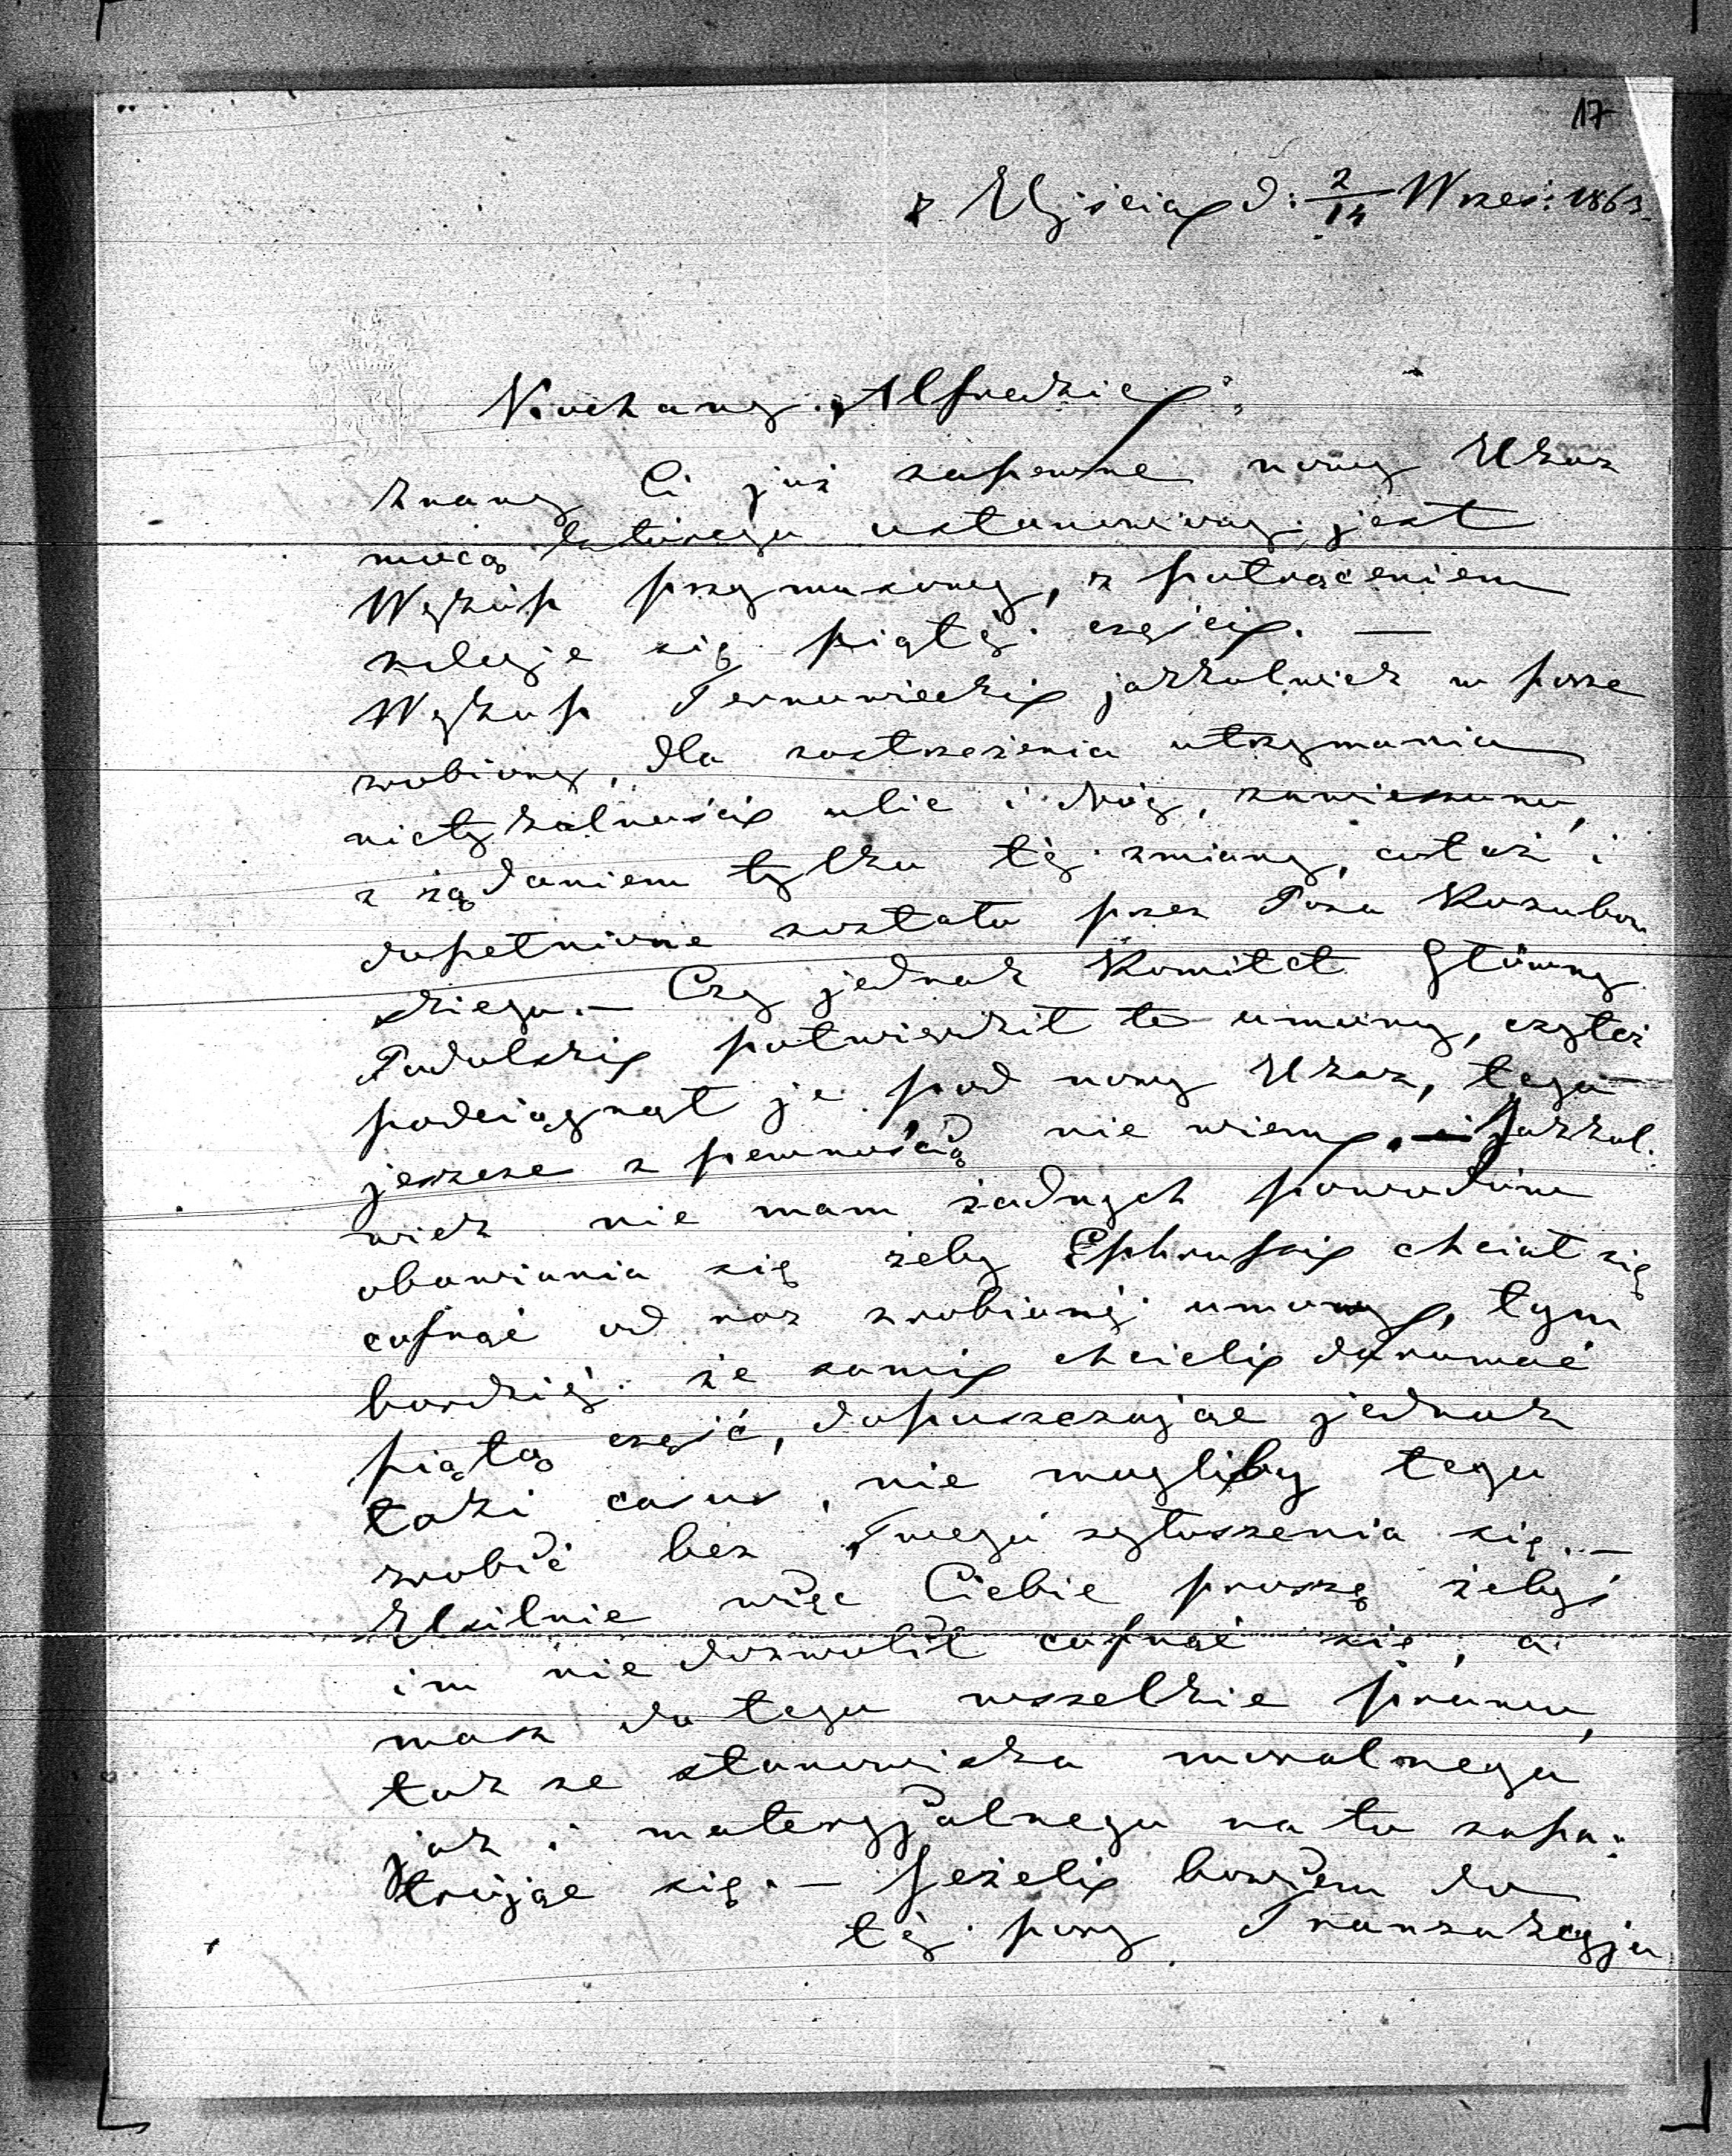 17
z Ujścia d: 2/14 Wrześ: 1863.
Kochany Alfredzie,
Znany Ci już zapewne nowy Ukaz
mocą którego ustanowiony jest
Wykup przymusowy, z potrąceniem
zdaje się piątéj części. —
Wykup Ternowiecki jakkolwiek w porze
zrobiony, dla zastrzeżenia utrzymania
nietykalności ulic i dróg,
z żądaniem tylko téj zmiany, cotéż i
dopełnione zostało przez
skiego. — Czy jednak Komitet Główny
Podolski potwierdził te umowy, czyteż
podciągnął je pod nowy Ukaz, tego
jeszcze z pewnością nie wiem. Jakkol:
wiek nie mam żadnych powodów
obawiania się żeby Ephrussi chciał się
cofnąć od raz zrobionéj umowy, tym
bardziéj że sami chcieli darować
piątą część, dopuszczając jednak
taki casus, nie mogliby tego
zrobić bez Twego zgłoszenia się. —
Usilnie więc Ciebie proszę żebyś
im nie dozwolił cofnąć się, a
masz do tego wszelkie prawo,
tak ze stanowiska moralnego
jak i materyjalnego na to zapa:
trując się. — Jeżeli bowiem do
téj pory Tranzakcyja